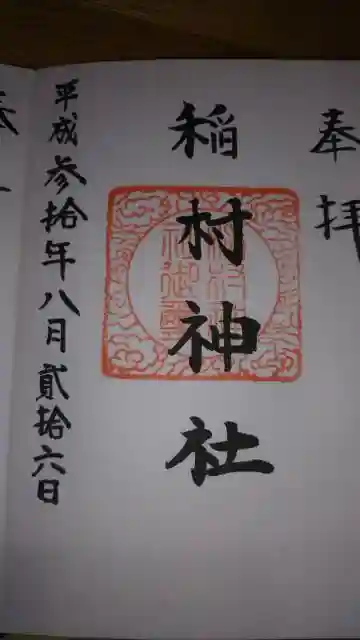 奉拝
稲村神社
平成参拾年八月貳拾六日